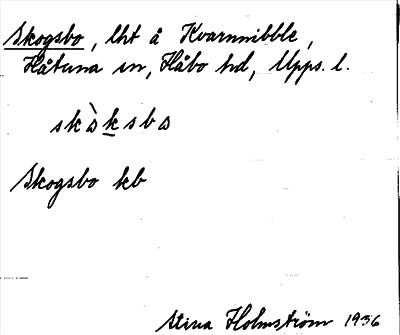 Skogsbo, lht å Kvarnnibble,
Håtuna sn, Håbo hd, Upps. l.
skòksbo
Skogsbo kb
Stina Holmström 1936